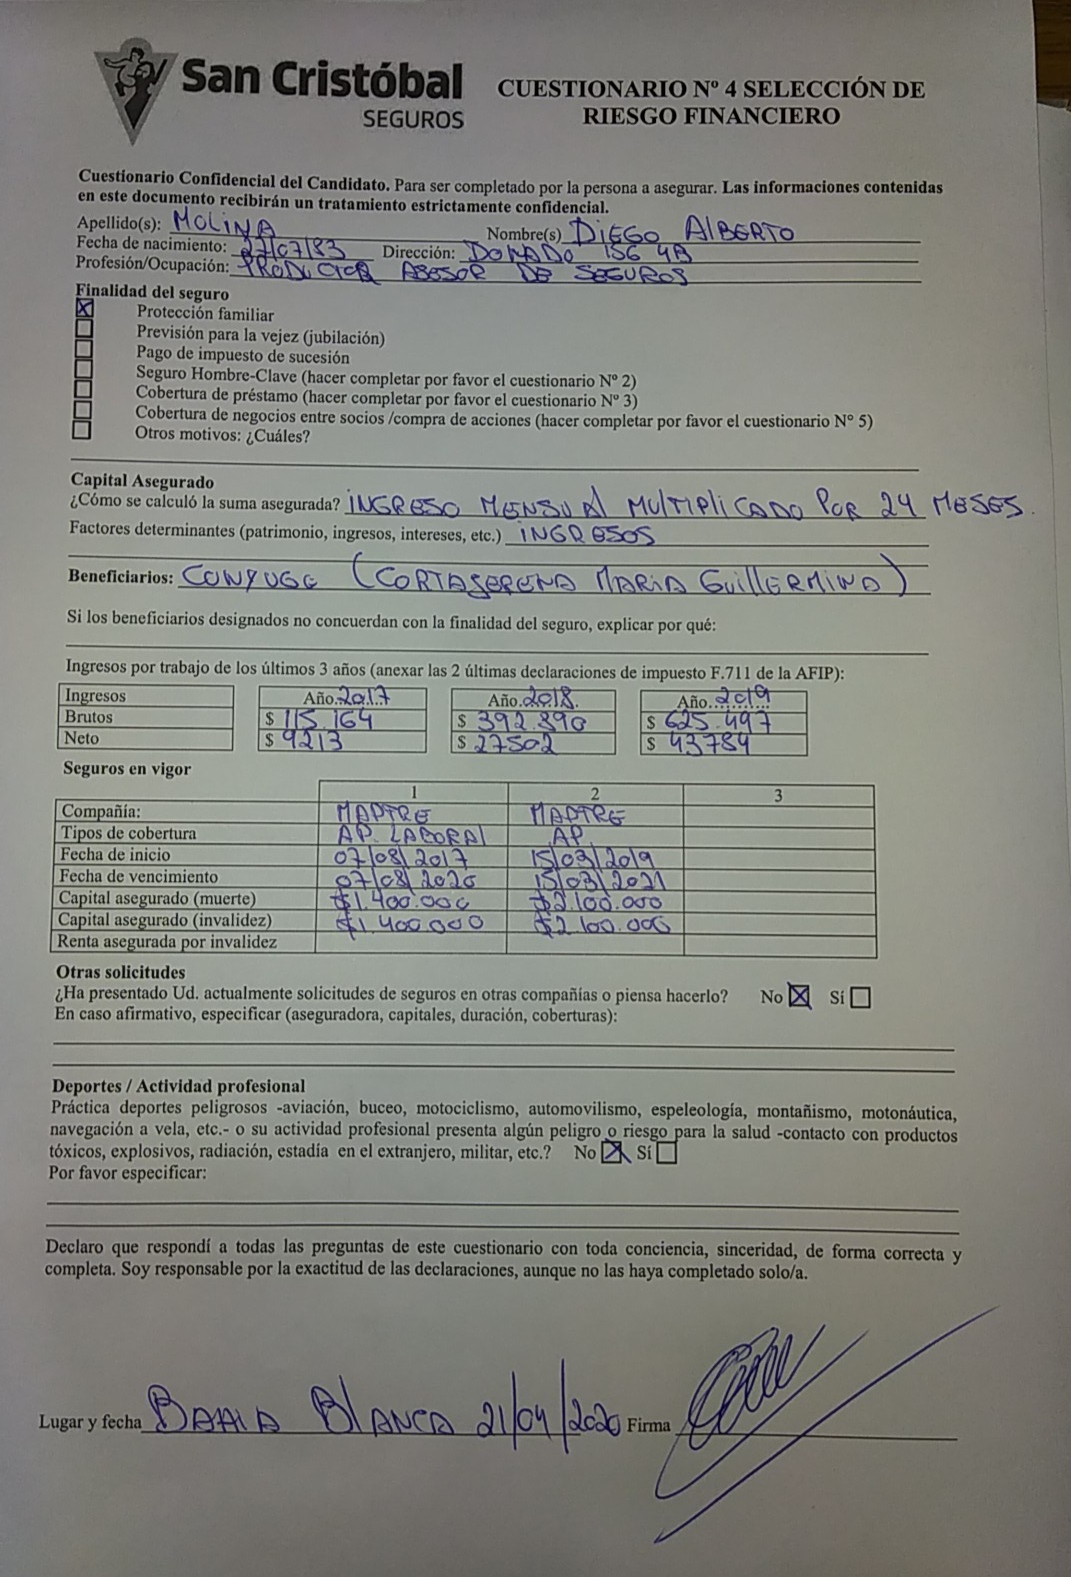 San Cristóbal
SEGUROS
CUESTIONARIO Nº 4 SELECCIÓN DE
RIESGO FINANCIERO
Cuestionario Confidencial del Candidato. Para ser completado por la persona a asegurar. Las informaciones contenidas
en este documento recibirán un tratamiento estrictamente confidencial.
Apellido(s): MOLINA Nombre(s) DIEGO ALBERTO
Fecha de nacimiento: 27/07/83 Dirección: DONADO 156 4B
Profesión/Ocupación: PRODUCTOR ASESOR DE SEGUROS
Finalidad del seguro
X Protección familiar
Previsión para la vejez (jubilación)
Pago de impuesto de sucesión
Seguro Hombre-Clave (hacer completar por favor el cuestionario Nº 2)
Cobertura de préstamo (hacer completar por favor el cuestionario Nº 3)
Cobertura de negocios entre socios /compra de acciones (hacer completar por favor el cuestionario N° 5)
Otros motivos: ¿Cuáles?
Capital Asegurado
¿Cómo se calculó la suma asegurada? INGRESO MENSUAL MULTIPLICADO POR 24 MESES.
Factores determinantes (patrimonio, ingresos, intereses, etc.) INGRESOS
Beneficiarios: CONYUGE (CORTASERENA MARIA GUILLERMINA)
Si los beneficiarios designados no concuerdan con la finalidad del seguro, explicar por qué:
Ingresos por trabajo de los últimos 3 años (anexar las 2 últimas declaraciones de impuesto F.711 de la AFIP):
Ingresos Año.2017 Año.2018. Año..2019
Brutos $ 115.164 $ 392.890 $ 625.497
Neto $ 9213 $ 27502 $ 43784
Seguros en vigor
1 2 3
Compañía: MAPFRE MAPFRE
Tipos de cobertura AP. LABORAL AP.
Fecha de inicio 07/08/2017 15/03/2019
Fecha de vencimiento 07/08/2020 15/03/2021
Capital asegurado (muerte) $1.400.000 $2.100.000
Capital asegurado (invalidez) $1.400.000 $2.100.000
Renta asegurada por invalidez
Otras solicitudes
¿Ha presentado Ud. actualmente solicitudes de seguros en otras compañías o piensa hacerlo? No X Sí
En caso afirmativo, especificar (aseguradora, capitales, duración, coberturas):
Deportes / Actividad profesional
Práctica deportes peligrosos -aviación, buceo, motociclismo, automovilismo, espeleología, montañismo, motonáutica,
navegación a vela, etc.- o su actividad profesional presenta algún peligro o riesgo para la salud -contacto con productos
tóxicos, explosivos, radiación, estadía en el extranjero, militar, etc.? No X Sí
Por favor especificar:
Declaro que respondí a todas las preguntas de este cuestionario con toda conciencia, sinceridad, de forma correcta y
completa. Soy responsable por la exactitud de las declaraciones, aunque no las haya completado solo/a.
Lugar y fecha BAHIA BLANCA 21/04/2020 Firma